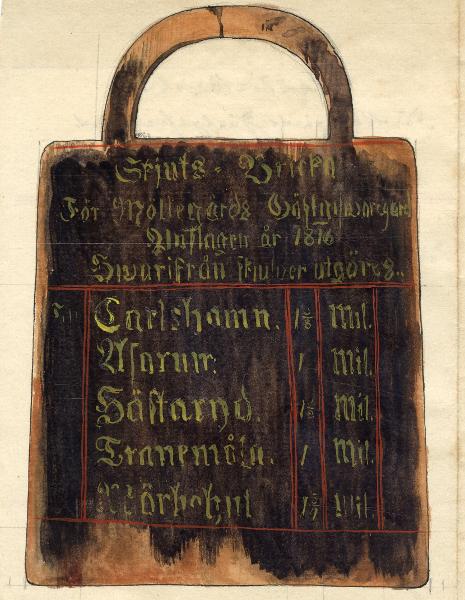 Skjuts- Bricka
För Mollegårds Gästgifwaregård
Anslagen år 1816
Hwarifrån skjutser utgöres.
Till Carlshamn. 1 Mil.
Asarum. 1 Mil.
Hästaryd. Mil.
Tranemåla. 1 Mil.
Mörhohul Mil.